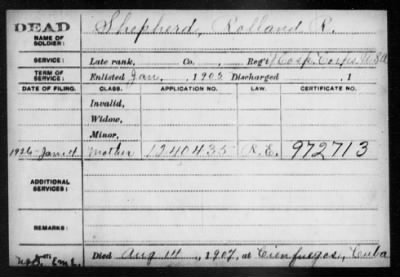 DEAD Shepherd, Rolland R.
NAME OF SOLDIER:
SERVICE: Late rank, Co. Reg't Hosp. Corps U.S.A
TERM OF SERVICE: Enlisted Jan. 1905 Discharged , 1
DATE OF FILING. CLASS. APPLICATION NO. LAW. CERTIFICATE NO.
Invalid,
Widow,
Minor,
1926-Jan. 4 Mother 1240435 R.E. 972713
ADDITIONAL SERVICES:
REMARKS:
Died Aug 14, 1907, at Cienfuegos, Cuba